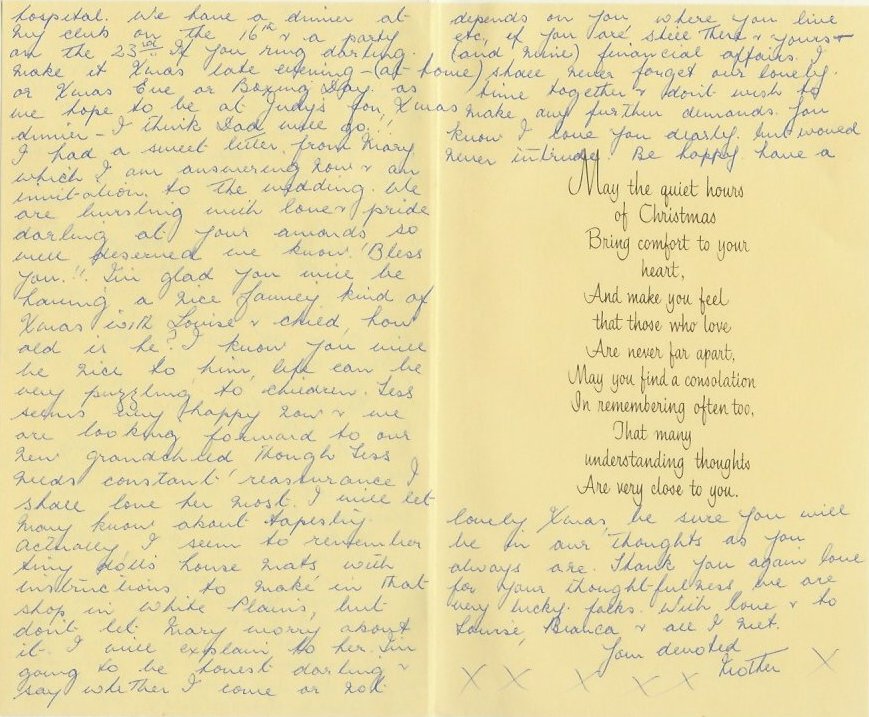 hospital. We have a dinner at
my club on the 16th & a party
on the 23rd. If you ring darling.
make it Xmas late evening - (at home)
or Xmas Eve or Boxing Day. as
we hope to be at Judy's for Xmas
dinner - I think Dad will go.!!
I had a sweet letter from Mary
which I am answering now & an
invitation. to the wedding. We
are bursting with love & pride
darling at your awards so
well deserved we know. Bless
you.!! I'm glad you will be
having a nice family kind of
Xmas with Louise & child, how
old is he? I know you will
be nice to him, life can be
very puzzling to children. Tess
seems very happy now & we
are looking forward to our
new grandchild though Tess
needs constant reassurance I
shall love her most. I will let
Mary know about tapestry.
Actually, I seem to remember
tiny dolls house mats with
instructions to make in that
shop in White Plains, but
don't let Mary worry about
it. I will explain to her. I'm
going to be honest darling &
say whether I come or not
depends on you, where you live
etc, if you are still there & yours
(and mine) financial affairs. I
shall never forget our lovely
time together & don't wish to
make any further demands. You
know I love you dearly. but would
never intrude. Be happy have a
May the quiet hours
of Christmas
Bring comfort to your
heart,
And make you feel
that those who love
Are never far apart,
May you find a consolation
In remembering often too,
That many
understanding thoughts
Are very close to you.
lovely Xmas, be sure you will
be in our thoughts as you
always are. Thank you again love
for your thoughtfulness we are
very lucky folks. With love & to
Louise, Bianca & all I met.
Your devoted
Mother
X X X X X X